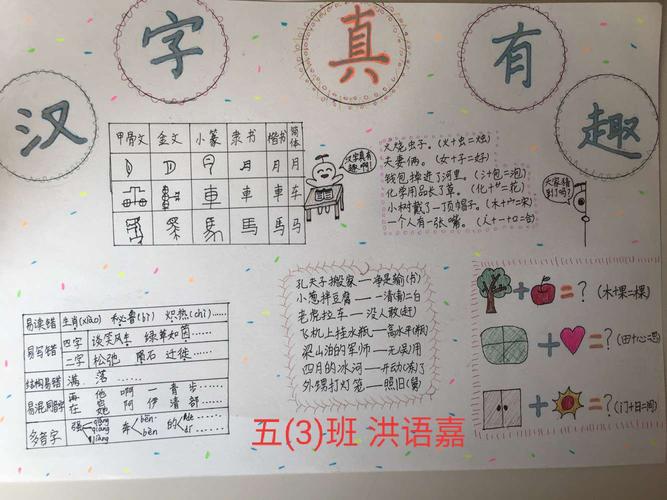 汉字真有趣
甲骨文 金文 小篆 隶书 楷书 简体
月 月 月
車 車 車 车
馬 馬 马
汉字真有趣啊!
火烧虫子。(火+虫=烛)
夫妻俩。(女+子=好)
钱包掉进了河里。(氵+包=泡)
化学用品长了草。(化+艹=花)
小树戴了一顶帽子。(木+宀=宋)
一个人有一张嘴。(人+一+口=合)
大家猜到了吗?
易读错 生肖(xiào) 秘鲁(bì) 炽热(chì)……
易写错 四字 谈笑风生 绿草如茵……
二字 松弛 陨石 迁徙……
结构易错 满 落……
易混同音字 再 他 啊 一 青 步…
在 她 阿 伊 清 部…
多音字 强 qiáng qiǎng jiàng 奔 bēn bèn 的
孔夫子搬家—净是输(书)
小葱拌豆腐—一清(青)二白
老虎拉车—没人敢(赶)
飞机上挂水瓶—高水平(瓶)
梁山泊的军师—无(吴)用
四月的冰河—开动(冻)了
外甥打灯笼—照旧(舅)
+ = ? (木+果=棵)
+ = ? (田+心=思)
+ = ? (门+日=间)
五(3)班 洪语嘉